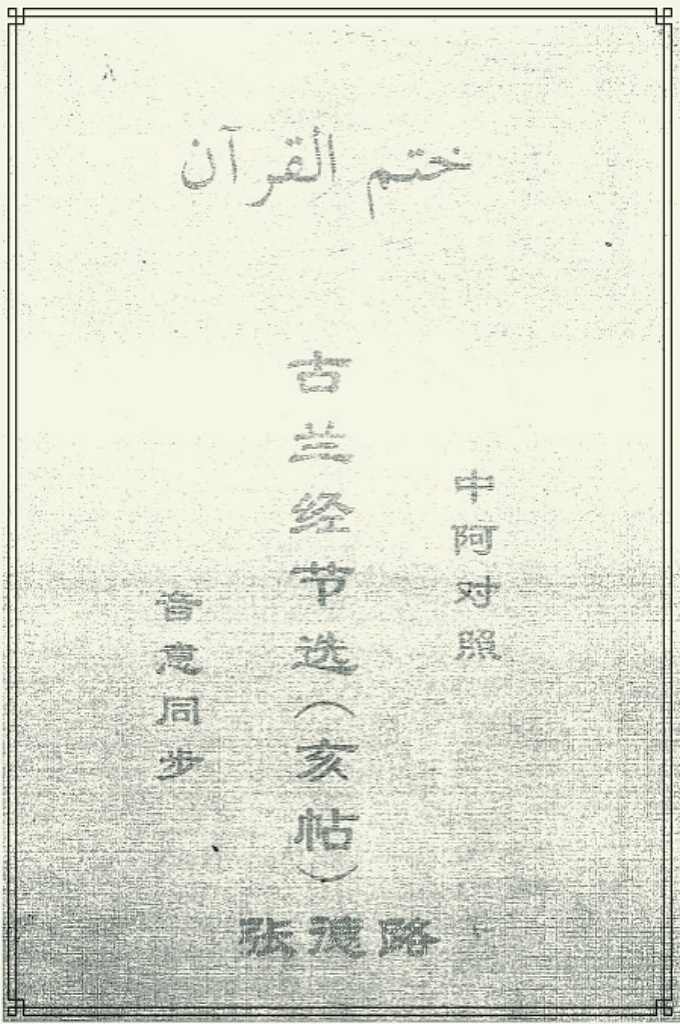 ختم القرآن
中阿对照
古兰经节选（亥帖）
音意同步
张德路